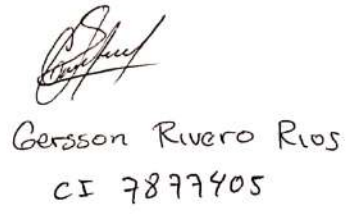 Gersson Rivero Rios
CI 7877405